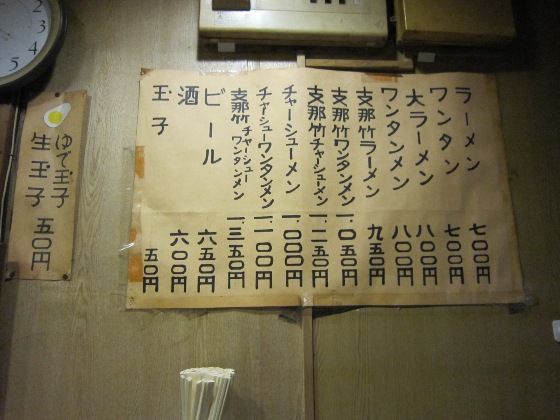 ラーメン 七〇〇円
ワンタン 七〇〇円
大ラーメン 八〇〇円
ワンタンメン 八〇〇円
支那竹ラーメン 九五〇円
支那竹ワンタンメン 一.〇五〇円
支那竹チャーシューメン 一.二五〇円
チャーシューメン 一.〇〇〇円
チャーシューワンタンメン 一.一〇〇円
支那竹チャーシューワンタンメン 一.三五〇円
ビール 六五〇円
酒 六〇〇円
玉子 五〇円
ゆで玉子
生玉子 五〇円
2
3
4
5